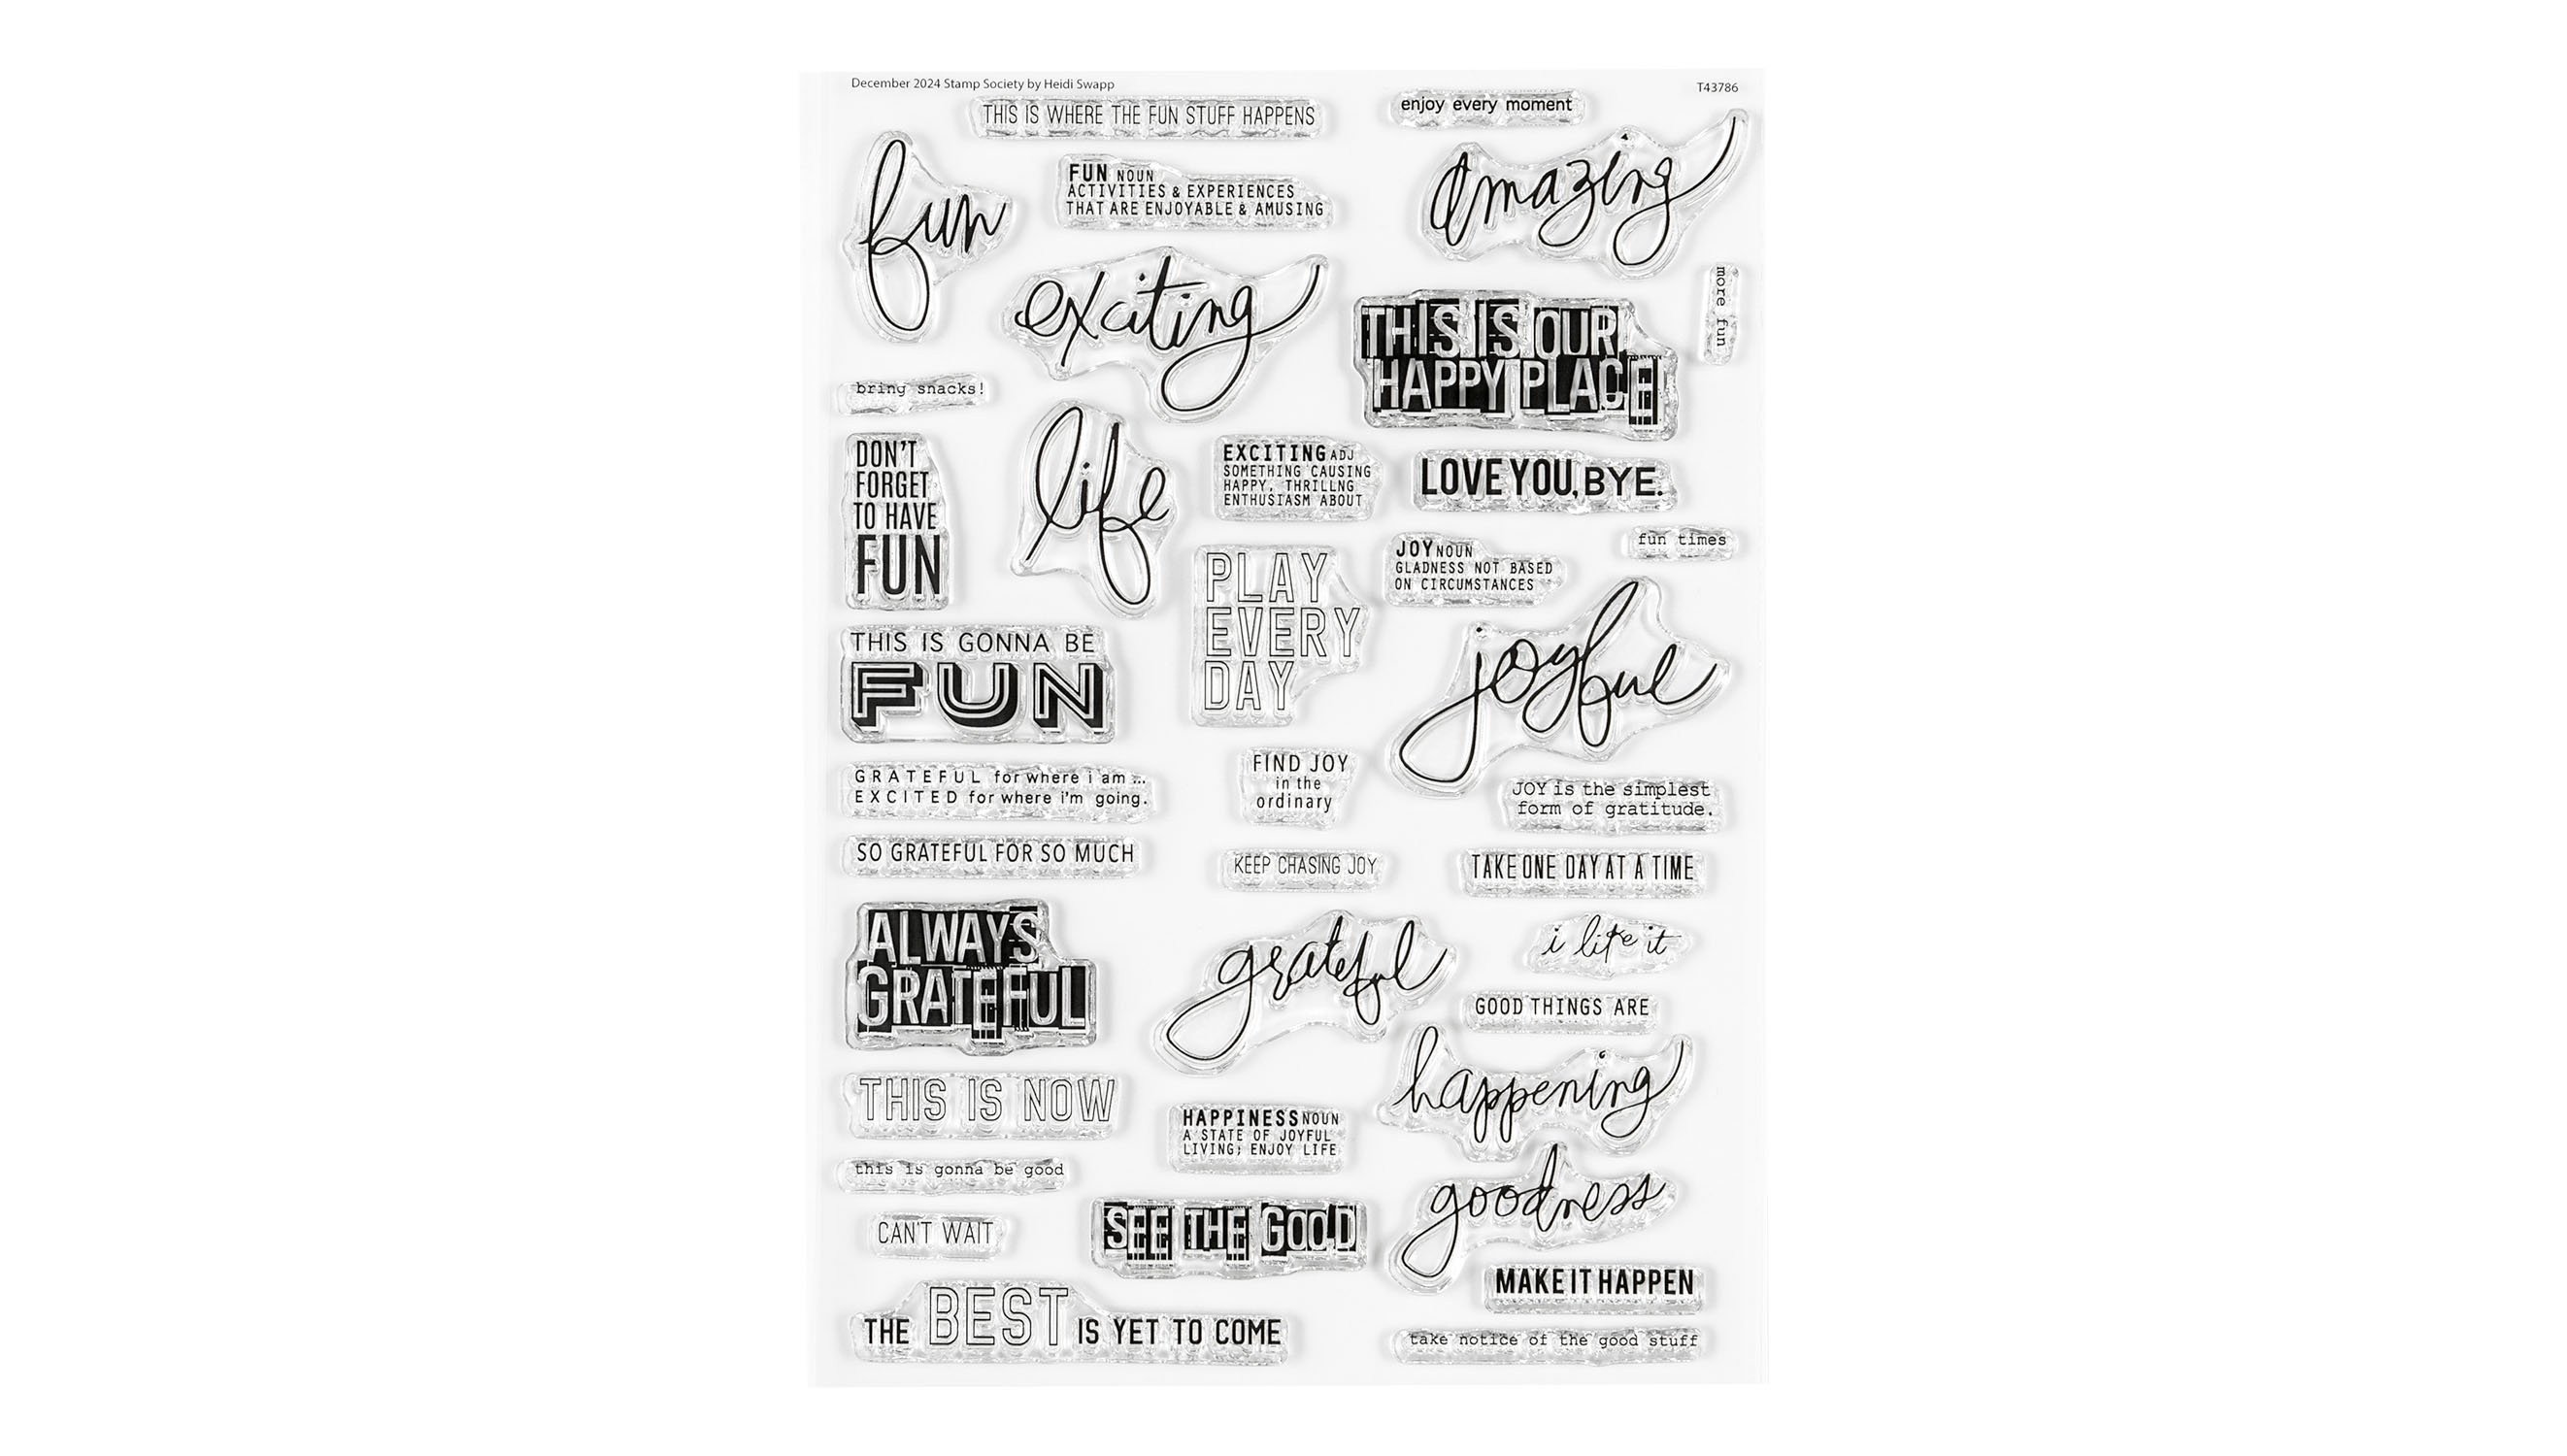 December 2024 Stamp Society by Heidi Swapp
T43786
THIS IS WHERE THE FUN STUFF HAPPENS
enjoy every moment
fun
FUN NOUN
ACTIVITIES & EXPERIENCES
THAT ARE ENJOYABLE & AMUSING
amazing
exciting
more fun
THIS IS OUR
HAPPY PLACE
bring snacks!
DON'T
FORGET
TO HAVE
FUN
life
EXCITING ADJ
SOMETHING CAUSING
HAPPY, THRILLNG
ENTHUSIASM ABOUT
LOVE YOU, BYE.
fun times
PLAY
EVERY
DAY
JOY NOUN
GLADNESS NOT BASED
ON CIRCUMSTANCES
THIS IS GONNA BE
FUN
joyful
GRATEFUL for where i am ...
EXCITED for where i'm going.
FIND JOY
in the
ordinary
JOY is the simplest
form of gratitude.
SO GRATEFUL FOR SO MUCH
KEEP CHASING JOY
TAKE ONE DAY AT A TIME
ALWAYS
GRATEFUL
grateful
i like it
GOOD THINGS ARE
happening
THIS IS NOW
HAPPINESS NOUN
A STATE OF JOYFUL
LIVING; ENJOY LIFE
this is gonna be good
goodness
CAN'T WAIT
SEE THE GOOD
MAKE IT HAPPEN
THE BEST IS YET TO COME
take notice of the good stuff